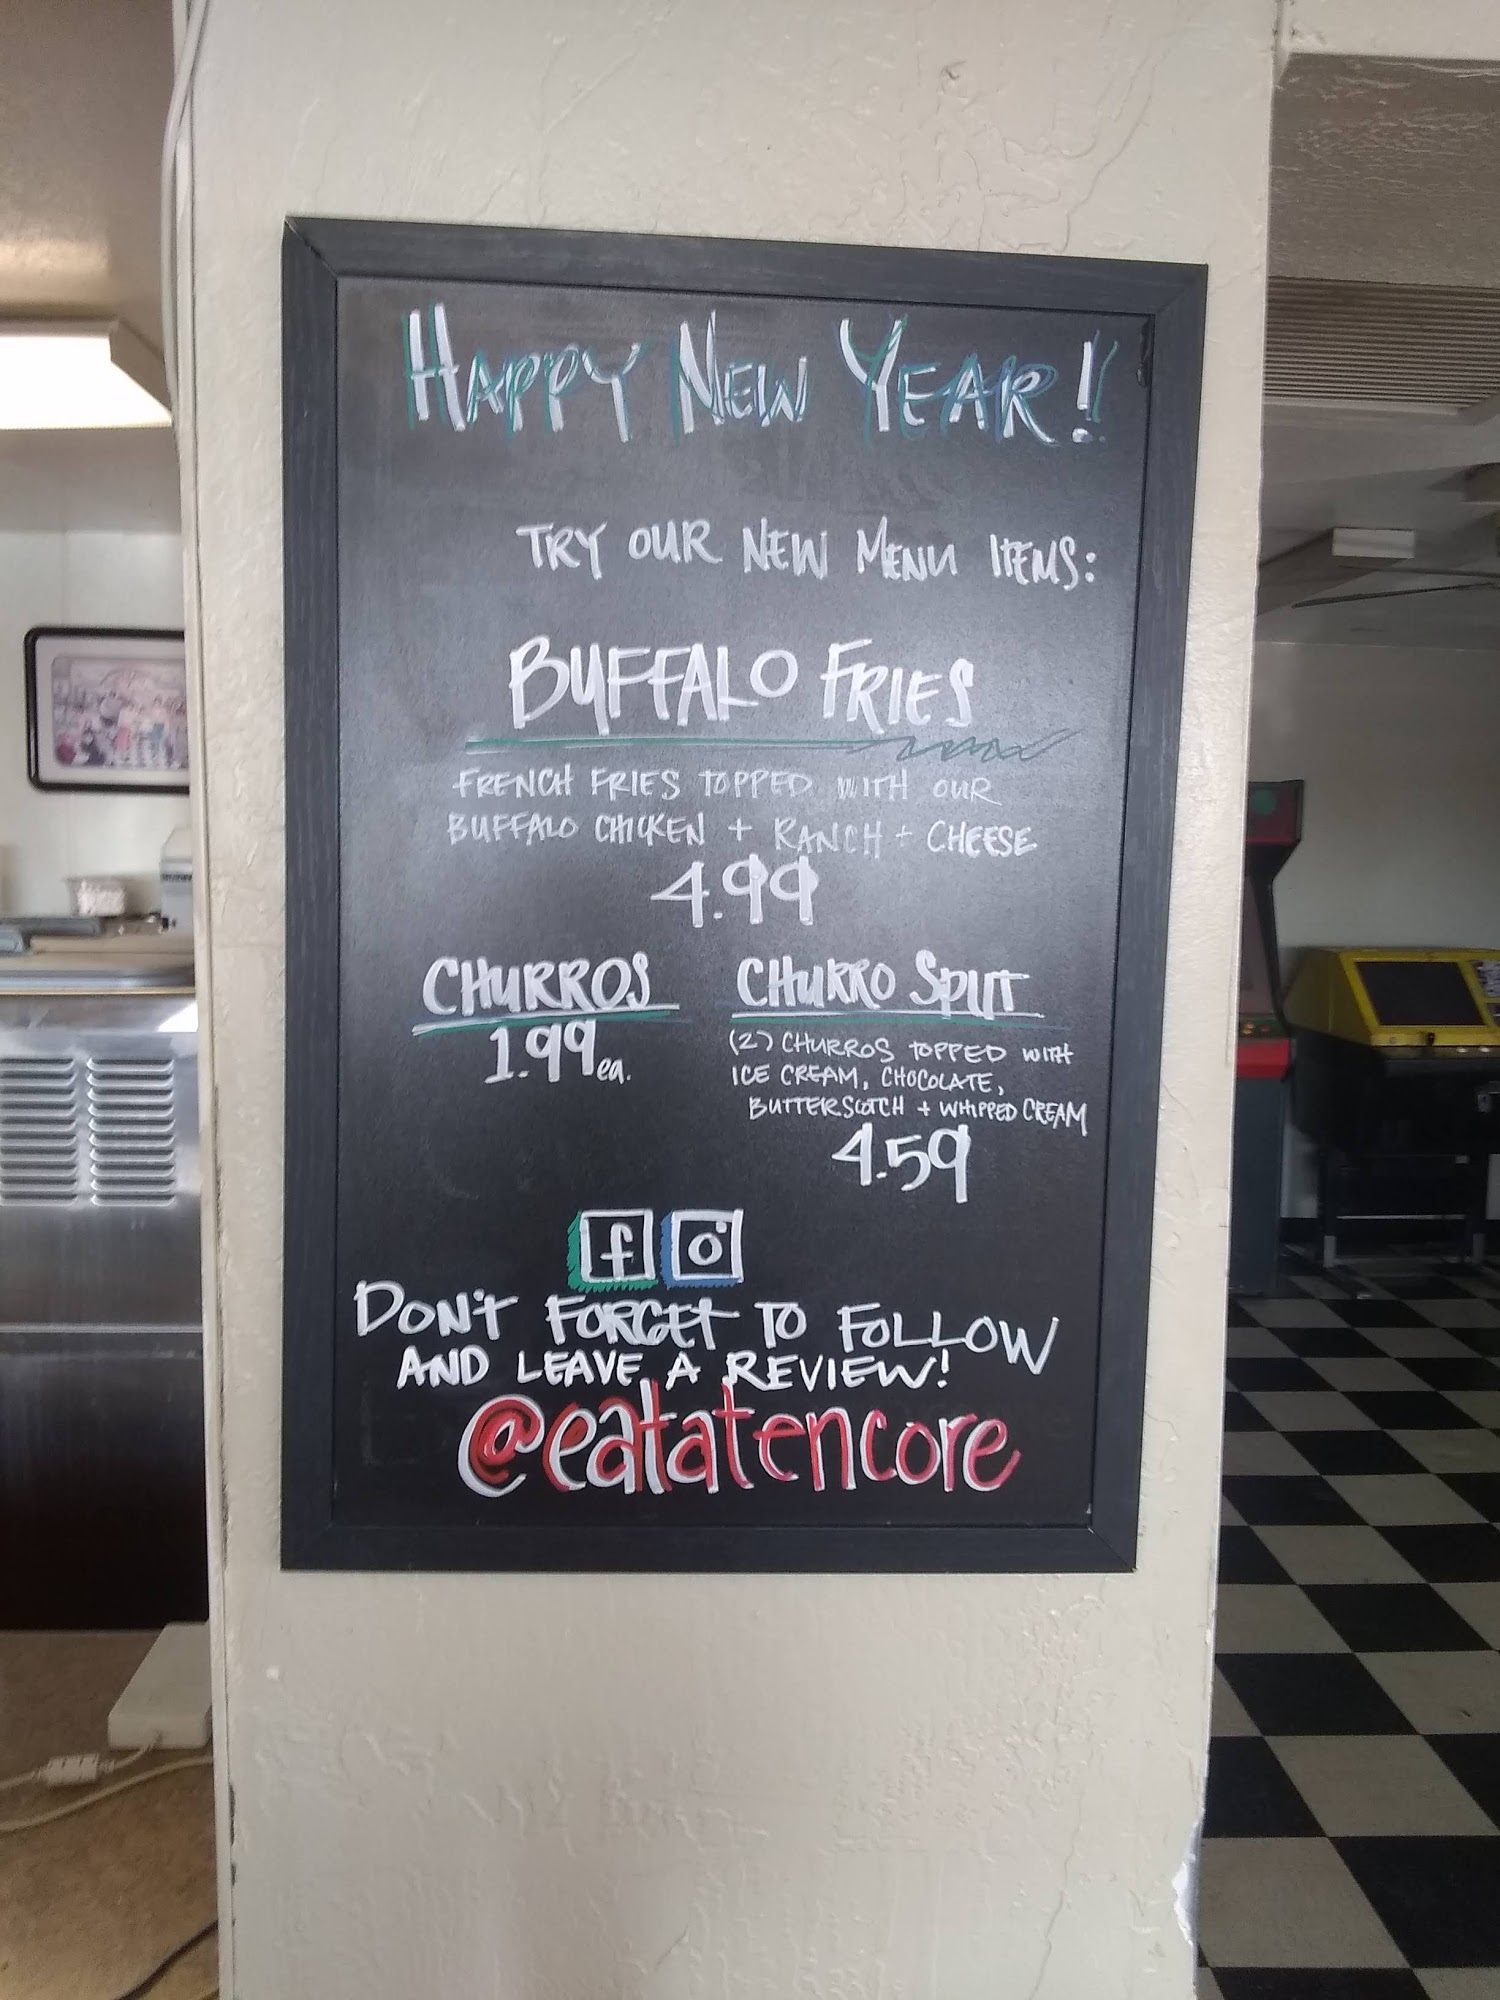 HAPPY NEW YEAR!
TRY OUR NEW MENU ITEMS:
BUFFALO FRIES
FRENCH FRIES TOPPED WITH OUR
BUFFALO CHICKEN + RANCH + CHEESE
4.99
CHURROS
1.99 ea.
CHURRO SPLIT
(2) CHURROS TOPPED WITH
ICE CREAM, CHOCOLATE,
BUTTERSCOTCH + WHIPPED CREAM
4.59
f
DON'T FORGET TO FOLLOW
AND LEAVE A REVIEW!
@eatatencore